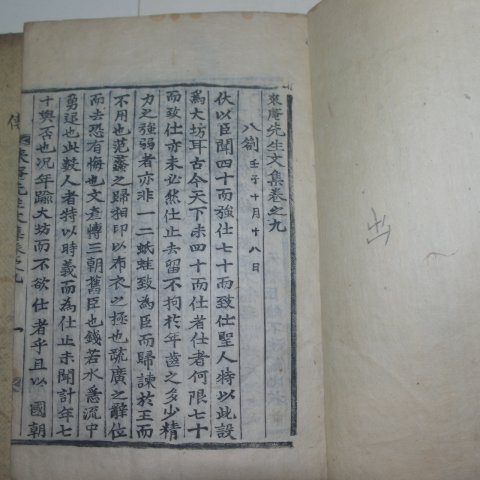 來庵先生文集卷之九
八劄 壬子十月十八日
伏以臣聞四十而強仕七十而致仕聖人特以此設
爲大坊耳古今天下未四十而仕者仕者何限七十
而致仕亦未必然仕止去留不拘於年齒之多少精
力之強弱者亦非一二蚔蛙致爲臣而歸諫於王而
不用也范蠡之歸相印以布衣之極也疏廣之辭位
而去恐有悔也文彥博三朝舊臣也錢若水急流中
勇退也此數人者特以時義而爲仕止未聞計年七
十與否也況年踰大坊而不欲仕者乎且以 國朝
來庵先生文集卷之九 一